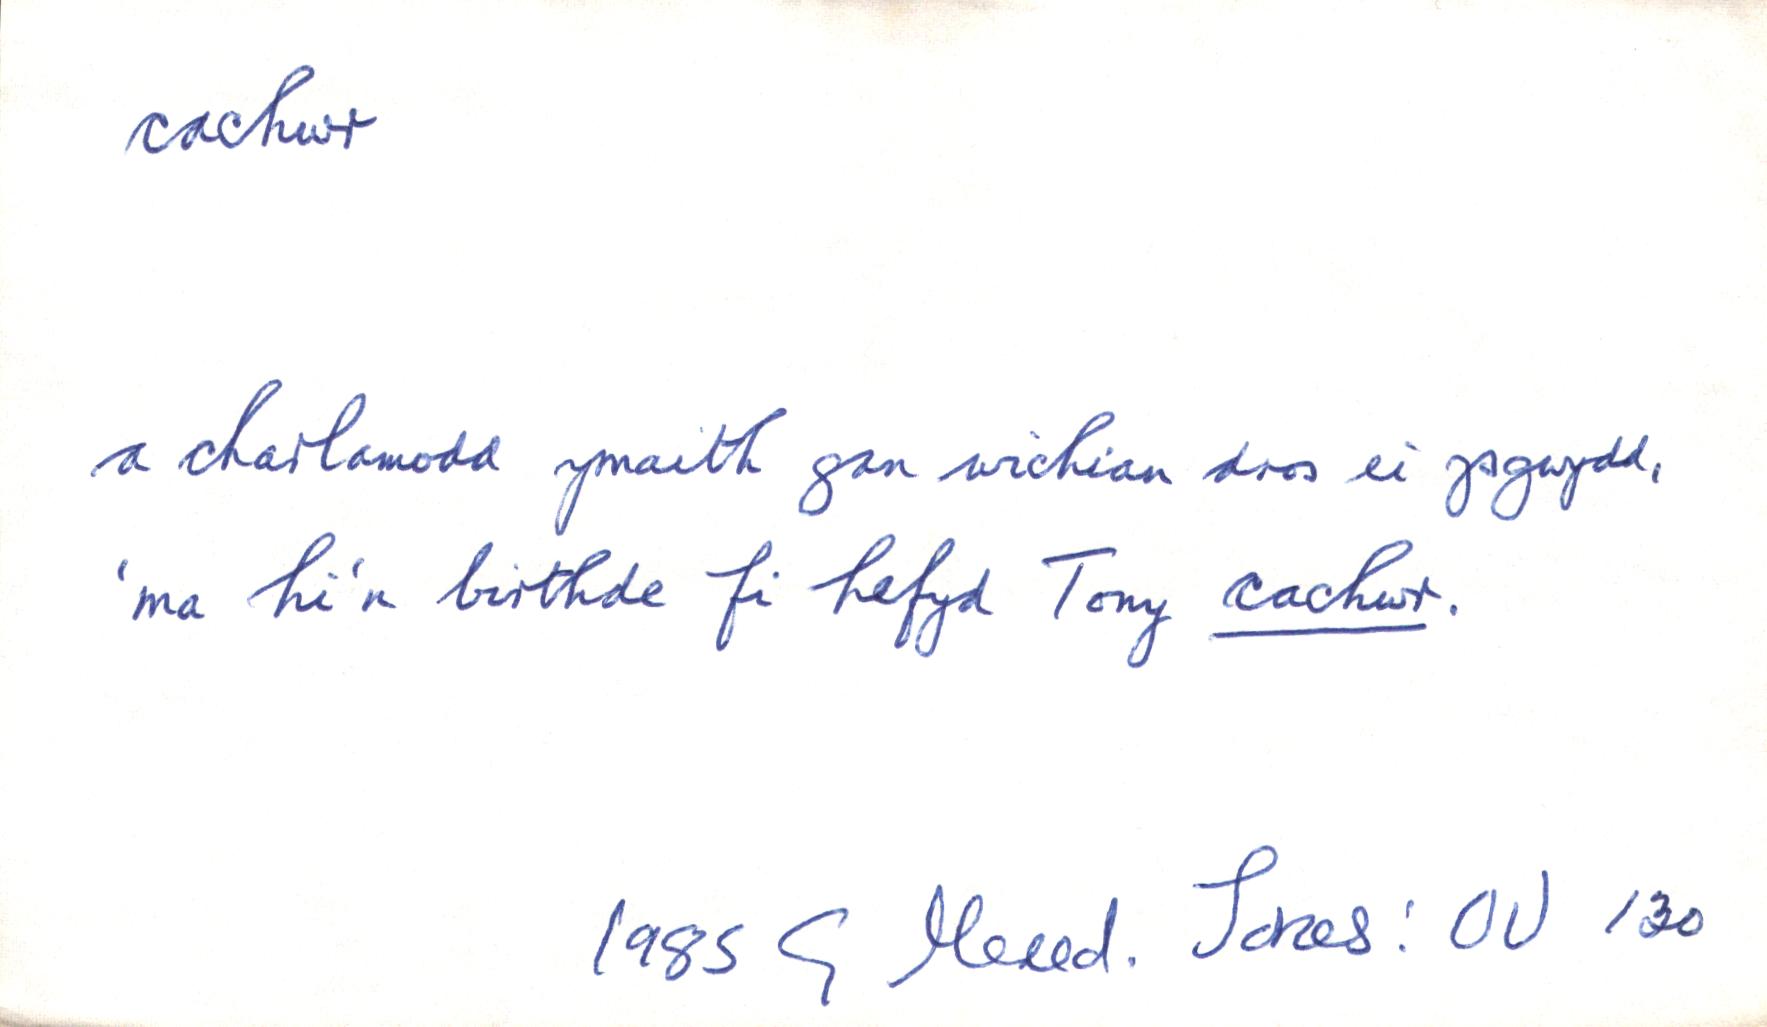 cachwr
a charlamodd ymaith gan wichian dros ei ysgwydd,
'ma hi'n birthde fi hefyd Tony cachwr.
1985 G Mered. Jones: OU 130